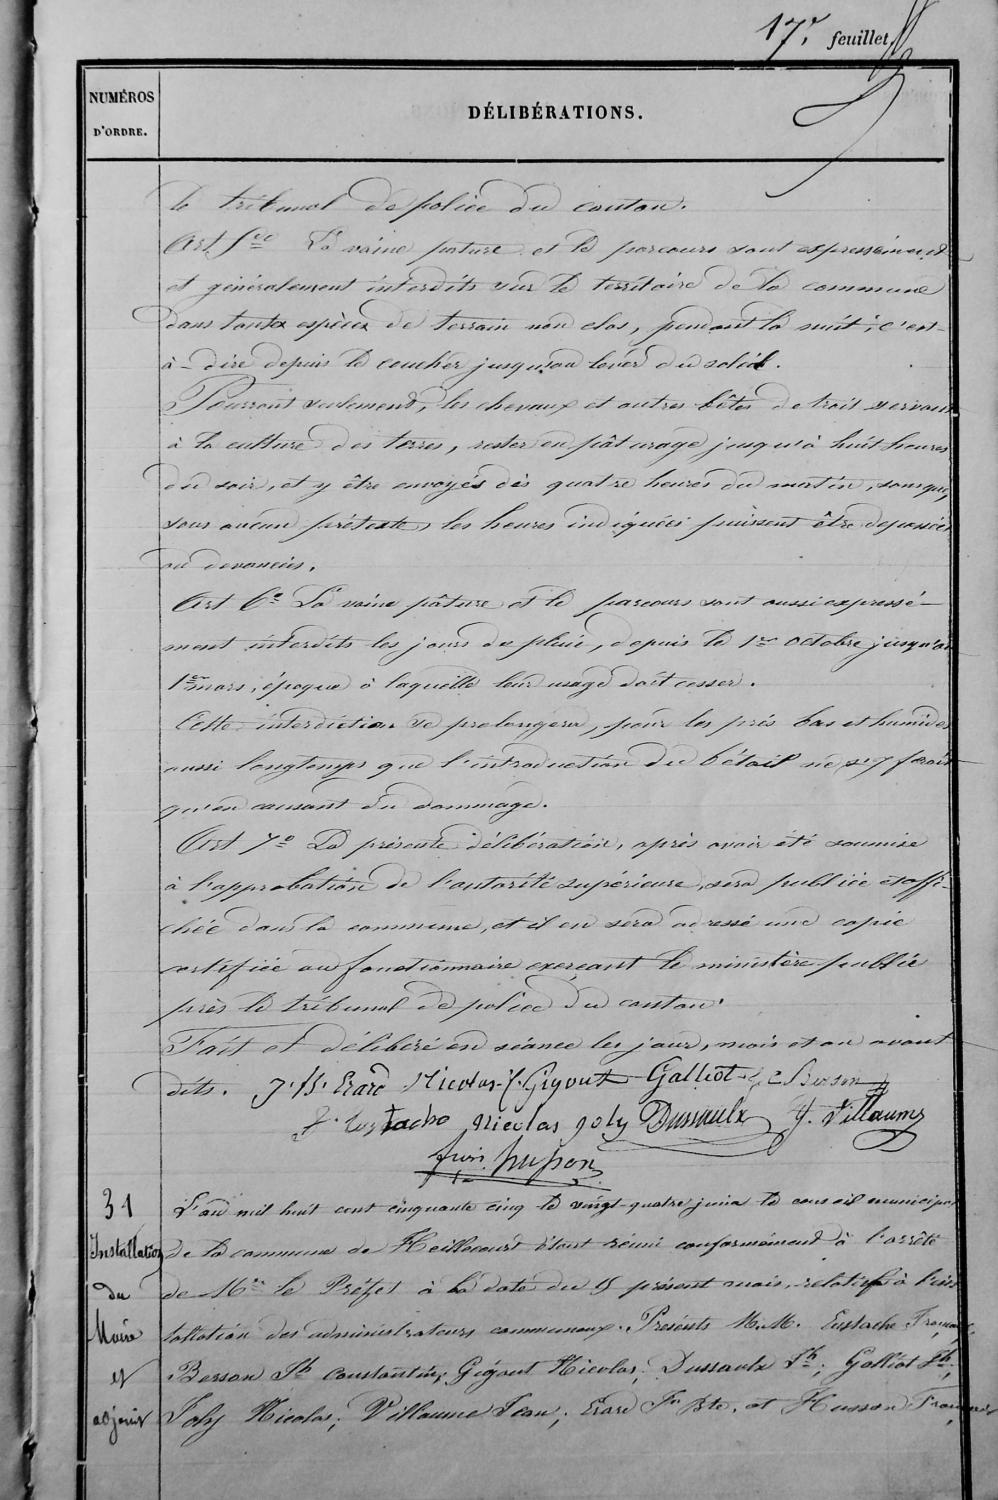 17e feuillet.
NUMÉROS D'ORDRE.
DÉLIBÉRATIONS.
le tribunal de police du canton.
Art 5e La vaine pature et le parcours sont expressément
et généralement interdits sur le térritoire de la commune
dans toutes espèces de terrain non clos, pendant la nuit; c'est-
à-dire depuis le coucher jusqu'au lever du soleil.
Pourront seulement, les chevaux et autres bêtes de trait servant
à la culture des terres, rester en pâturage jusqu'à huit heures
du soir, et y être envoyés dès quatre heures du matin, sans que,
sous aucun prétexte, les heures indiquées puissent être depassées
ou devancées.
Art 6e La vaine pâture et le parcours sont aussi expressé-
ment interdits les jours de pluie, depuis le 1er octobre jusqu'au
1er mars, époque à laquelle leur usage doit cesser.
Cette interdiction se prolongera, pour les prés bas et humides
aussi longtemps que l'introduction du bétail ne s'y ferait
qu'en causant du dommage.
Art 7e La présente délibération, après avoir été soumise
à l'approbation de l'autorité supérieure, sera publiée et affi-
chée dans la commune, et il en sera adressé une copie
certifiée au fonctionnaire exerçant le ministère public
près le tribunal de police du canton.
Fait et délibéré en séance les jour, mois et an avant
dits. J. B. Erard Nicolas Gigout Galliot J C Berson
F. Eustache Nicolas Joly Dussaulx J. Villaume
fris husson
31
Installation
du
Maire
et
adjoint
L'an mil huit cent cinquante cinq le vingt-quatre juin le conseil municipal
de la commune de Heillecourt étant réuni conformément à l'arrêté
de Mr le Préfet à la date du 15 présent mois, relatif à l'ins
tallation des administrateurs communaux. Présents M.M. Eustache François,
Bersson Jh Constantin, Gigout Nicolas; Dussaulx Jh; Galliot Jh;
Joly Nicolas; Villaume Jean; Erard Jn Bte. et Husson François,